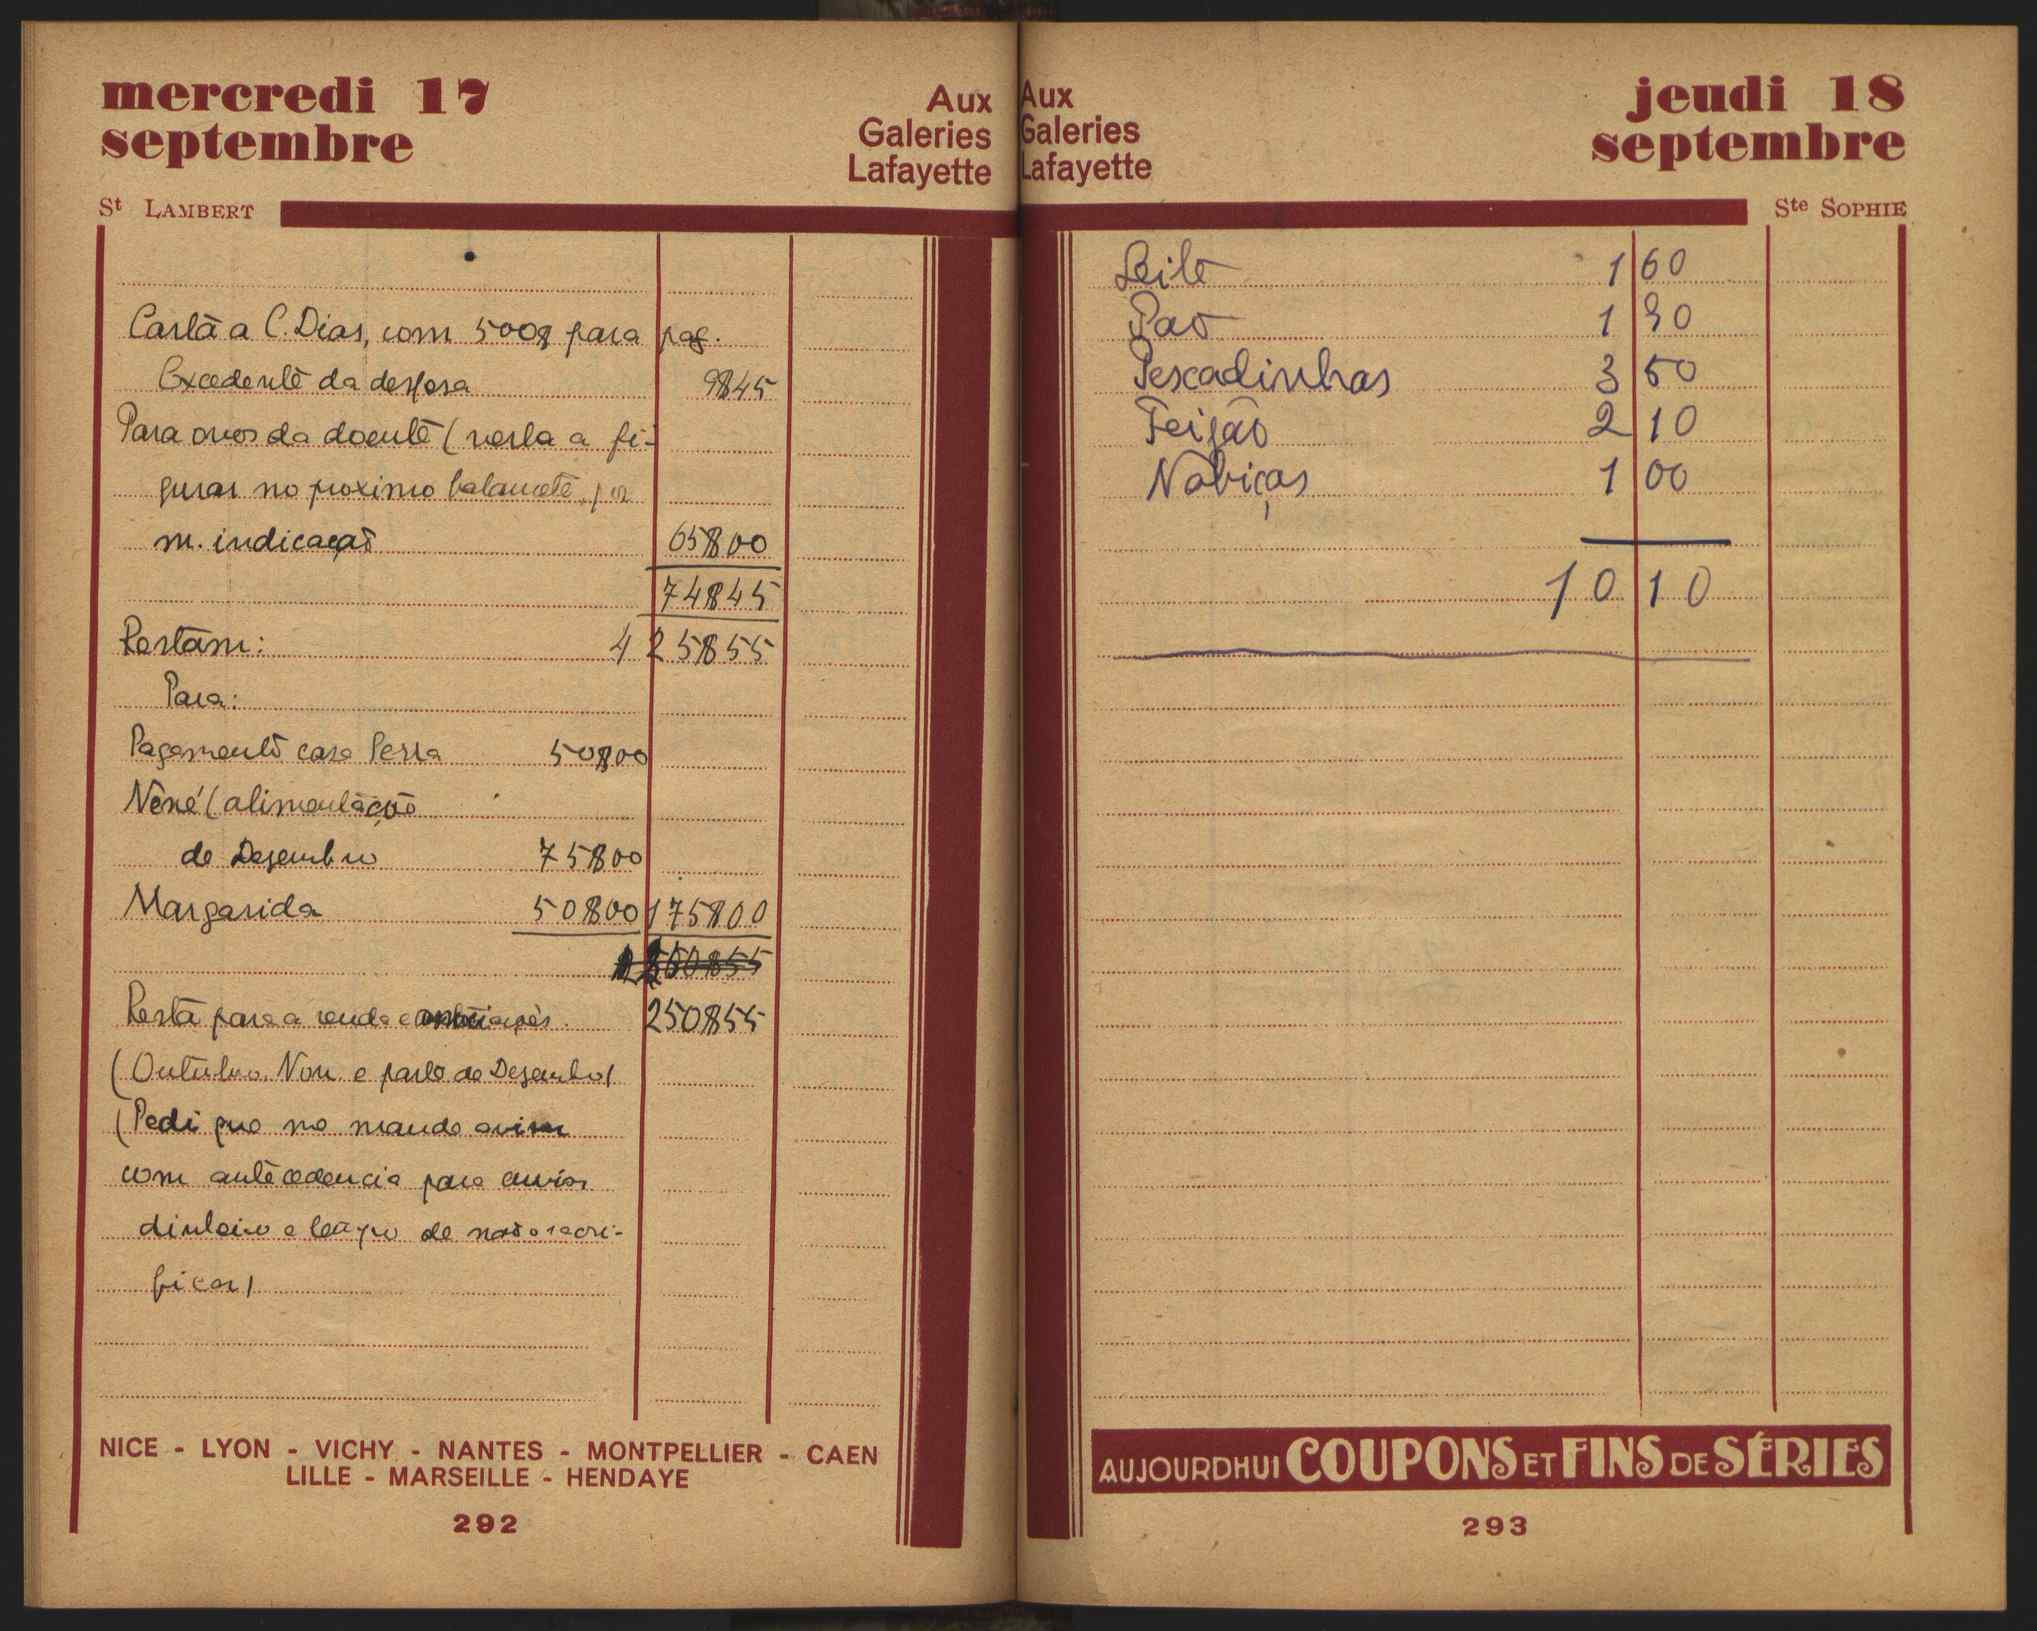 mercredi 17
septembre
Aux
Galeries
Lafayette
St LAMBERT
Carta a C. Dias, com 500$ para pag.
Excedente da despesa 9$45
Para ovos da doente (verba a fi-
gurar no proximo balancete, por
m. indicação 65$00
74$45
Restam: 425$55
Para:
Pagamento casa Pessa 50$00
Nêné (alimentação
de Dezembro 75$00
Margarida 50$00 175$00
Resta para a renda e 250$55
(Outubro, Nov. e parte de Dezembro)
(Pedi que me mande avisar
com antecedencia para enviar
dinheiro e tempo de não o sacri-
ficar)
NICE - LYON - VICHY - NANTES - MONTPELLIER - CAEN
LILLE - MARSEILLE - HENDAYE
292
Aux
Galeries
Lafayette
jeudi 18
septembre
Ste SOPHIE
Leite 1 60
Pão 1 90
Pescadinhas 3 50
Feijão 2 10
Nabiças 1 00
10 10
AUJOURDHUI COUPONS ET FINS DE SÉRIES
293